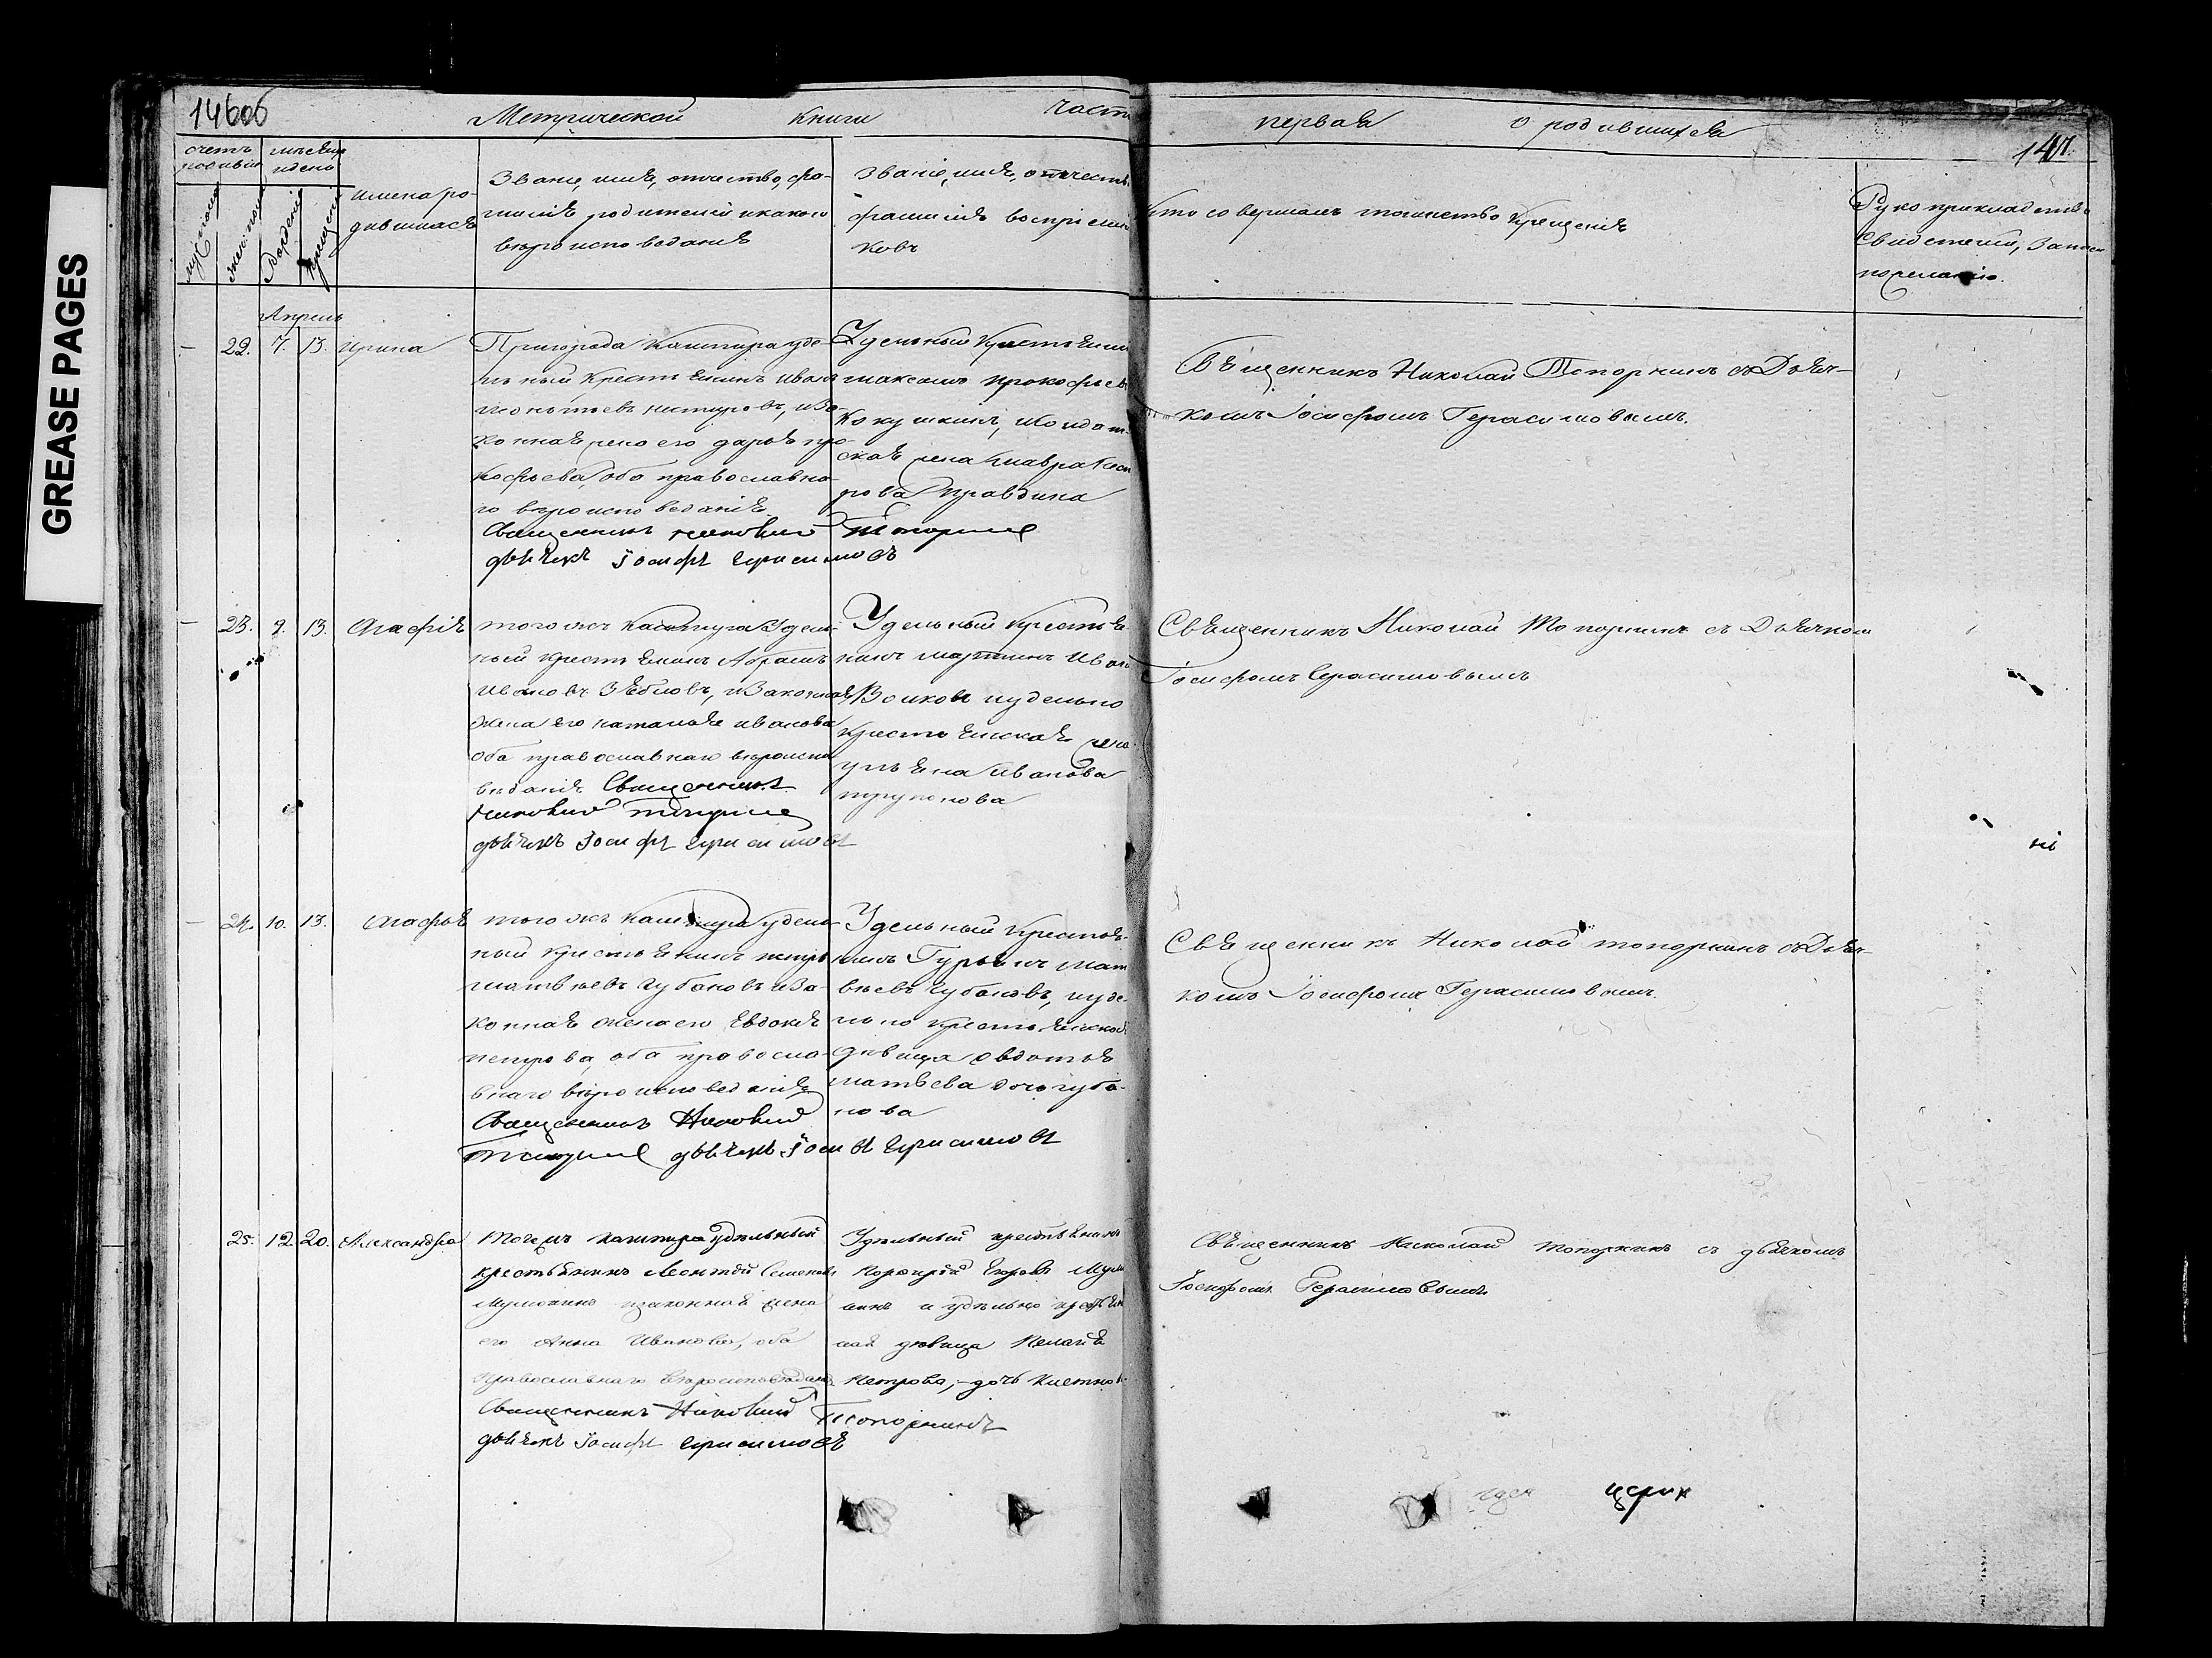 GREASE PAGES
146об
Метрической книги часть
первая о родившихся
147.
счетъ родивш
мѣсяцъ и день
муж: пола
жен: пола
рождения
крещения
имена родившихся
Званіе, имя, отчество, фамилія родителей и какого вѣроисповеданія
Званіе, имя, отчество фамилія воспріемниковъ
Кто совершалъ таинство Крещенія
Рукоприкладство свидетелей, записи по желанію.
Апрель
22. 7. 13. Ирина
Пригорода Кашпира уде-
льный крестьянинъ Иванъ
ко
нная жена его дарья про-
кофьева, оба православна-
го вѣроисповеданія
Священникъ Николай Топорнинъ
дьячекъ Іосифъ Герасимовъ
Удельный крестьянин
максимъ прокофьевъ
Кокушкинъ, и солдат-
ская жена
рова Правдина
Священникъ Николай Топорнинъ съ Дьяч-
комъ Іосифомъ Герасимовымъ.
23. 9. 13. Агафія
того жъ Кашпира Удель-
ный крестьянинъ Абрамъ
Ивановъ Зябловъ, и законная
жена его наталья иванова
оба православнаго вѣроиспо
вѣданія Священникъ
Николай Топорнинъ
дьячекъ Іосифъ Герасимовъ
Удельный крестья-
нинъ мартинъ Иванов
Волковъ и удельно
крестьянская жена
ульяна Иванова
Священникъ Николай Топорнинъ съ Дьячком
Іосифомъ Герасимовымъ
24. 10. 13. Агафья
того жъ Кашпира удель-
ный крестьянинъ петръ
матвѣевъ Губановъ и За-
конная жена его Евдокия
петрова, оба правосла-
внаго вѣроисповеданія
Священникъ Николай
Топорнинъ дьячекъ Іосифъ Герасимовъ
Удельный крестья-
нинъ Гурьянъ мат
вѣевъ Губановъ, и уде-
льно крестьянская
дѣвица Овдотья
матвѣева дочь губа-
нова
Священникъ Николай топорнинъ съ Дьяч-
комъ Іосифомъ Герасимовымъ.
25. 12. 20. Александра
Тогожъ кашпира удѣльный
крестьянинъ Леонтій Семеновъ
и законная жена
его Анна Иванова, оба
Православнаго вѣроисповѣдания
Священникъ Николай Топорнинъ
дьячекъ Іосифъ Герасимовъ
Удѣльный крестьянинъ
Порфирій Егоровъ
и удѣльно крестьян
ская дѣвица Пелагія
Петрова, дочь
Священникъ Николай топорнинъ съ дьячкомъ
Іосифомъ Герасимовымъ